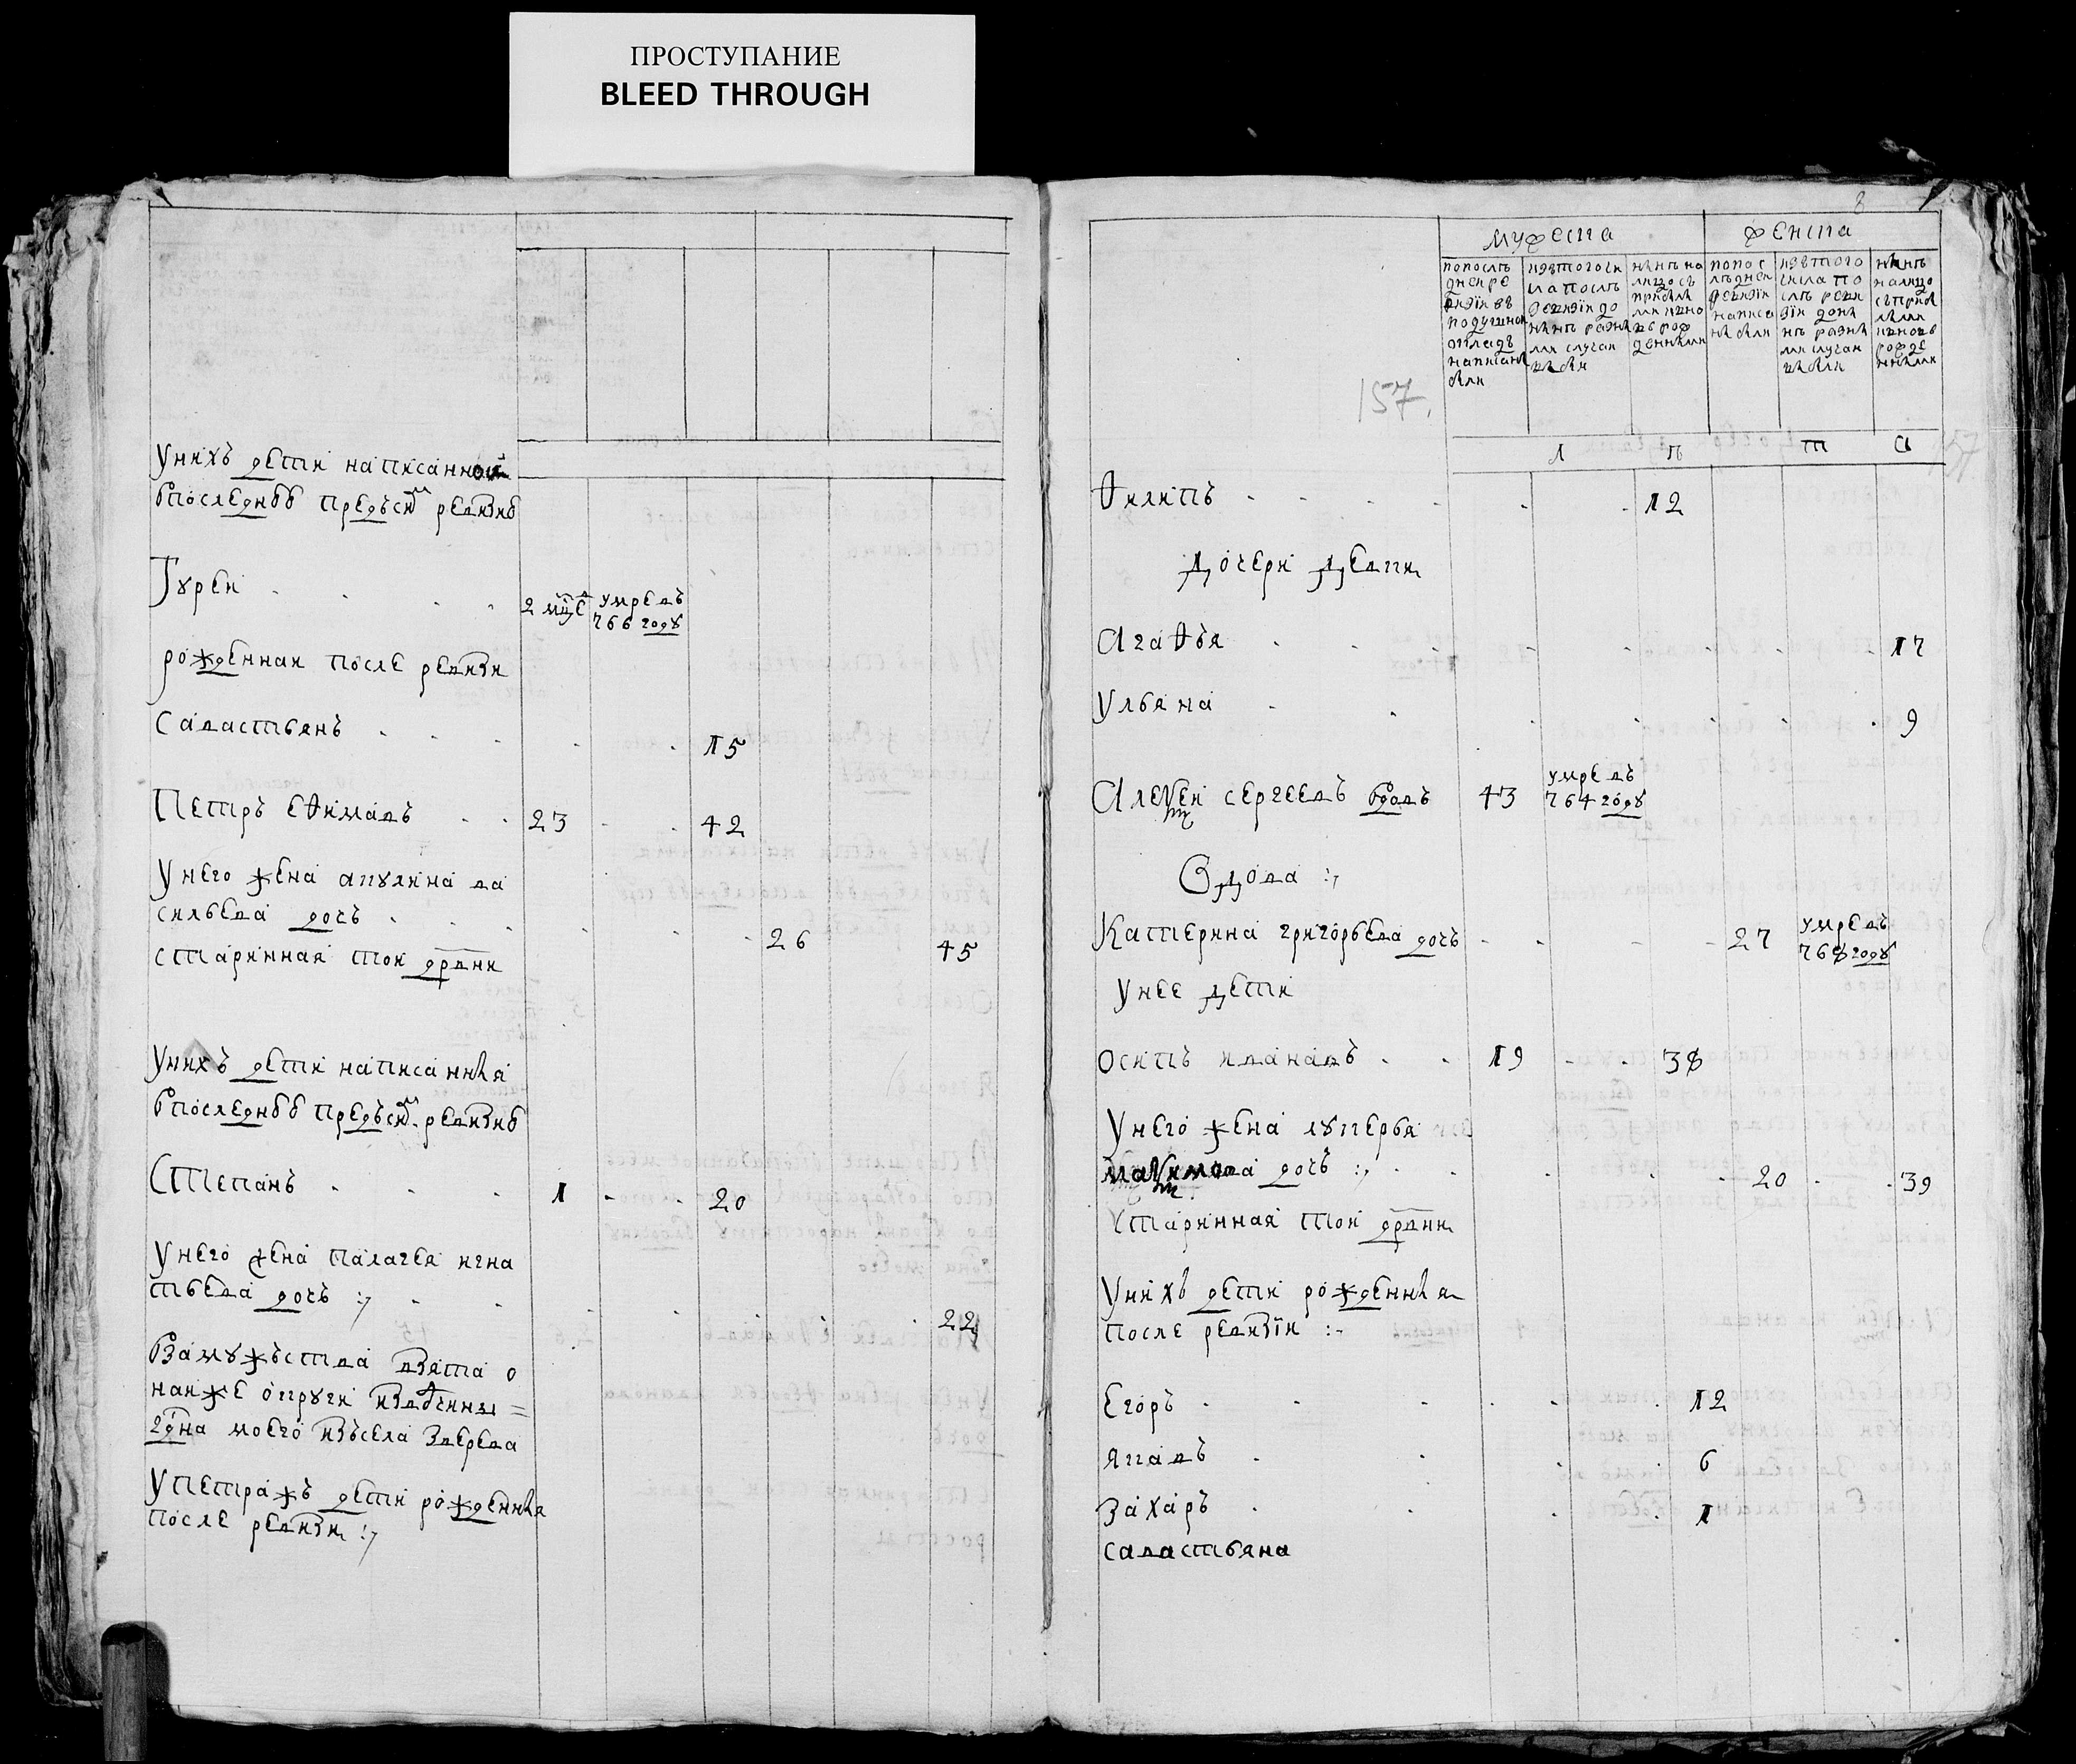 ПРОСТУПАНИЕ
BLEED THROUGH
Унихъ дети написанной
впоследнюю предъсимъ ревизию
Гурей
2 мцсе
умре въ
766 году
рожденная после ревизи
Савастьянъ 15
Петръ еѳимавъ 23 42
Унего жена акулина ва
сильева дочь 26 45
старинная той деревни
Унихъ дети написанныя
впоследнюю предъсимъ ревизию
Степанъ 1 20
Унего жена палагея игна
тьева дочь 22
Взамужъства взята о
найже округи
моего изъсела
Упетражъ дети рожденныя
после ревизи
8
157
мужеска
женска
попослѣ
дней ре
визіи въ
подушной
окладъ
написаны
были
изътогочи
сла послѣ
ревизіи до
нынѣ разны
ми случаи
выбыли
нынѣ на
лицо съ
прибылы
ми и вно
въ рож
денными
попос
лѣдней
ревизіи
написа
ны были
изътого
числа по
слѣ реви
зіи доны
нѣ разны
ми случаи
выбыли
нынѣ
налицо
съприбы
лыми
ивновь
рожде
нными
л л т а
Ѳилипъ 12
Дочери девки
Агаѳья 17
Ульяна 9
Алексеи сергеевъ вдовъ 43
умре въ
764 году
Вдова
Катерина григорьева дочь 27
умре въ
768 году
Унее дети
осипъ ивановъ 19 38
Унего жена лукерья
максимова дочь 20 39
старинная той деревни
Унихъ дети рожденныя
после ревизіи
Егоръ 12
Якавъ 6
Захаръ 1
савастьяна